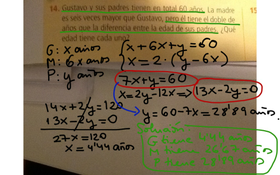 14. Gustavo y sus padres tienen en total 60 años. La madre
es seis veces mayor que Gustavo, pero él tiene el doble de
años que la diferencia entre la edad de sus padres. ¿Qué
edad tiene cada uno?
G: x años
M: 6x años
P: y años
x+6x+y=60
x=2·(y-6x)
7x+y=60
x=2y-12x => 13x-2y=0
14x+2y=120
13x-2y=0
27x=120
x=4'44 años
y=60-7x=28'89 años.
Solución:
G tiene 4'44 años
M tiene años
P tiene 28'89 años